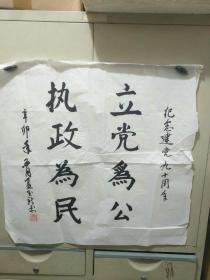 纪念建党九十周年
立党为公
执政為民
辛卯年